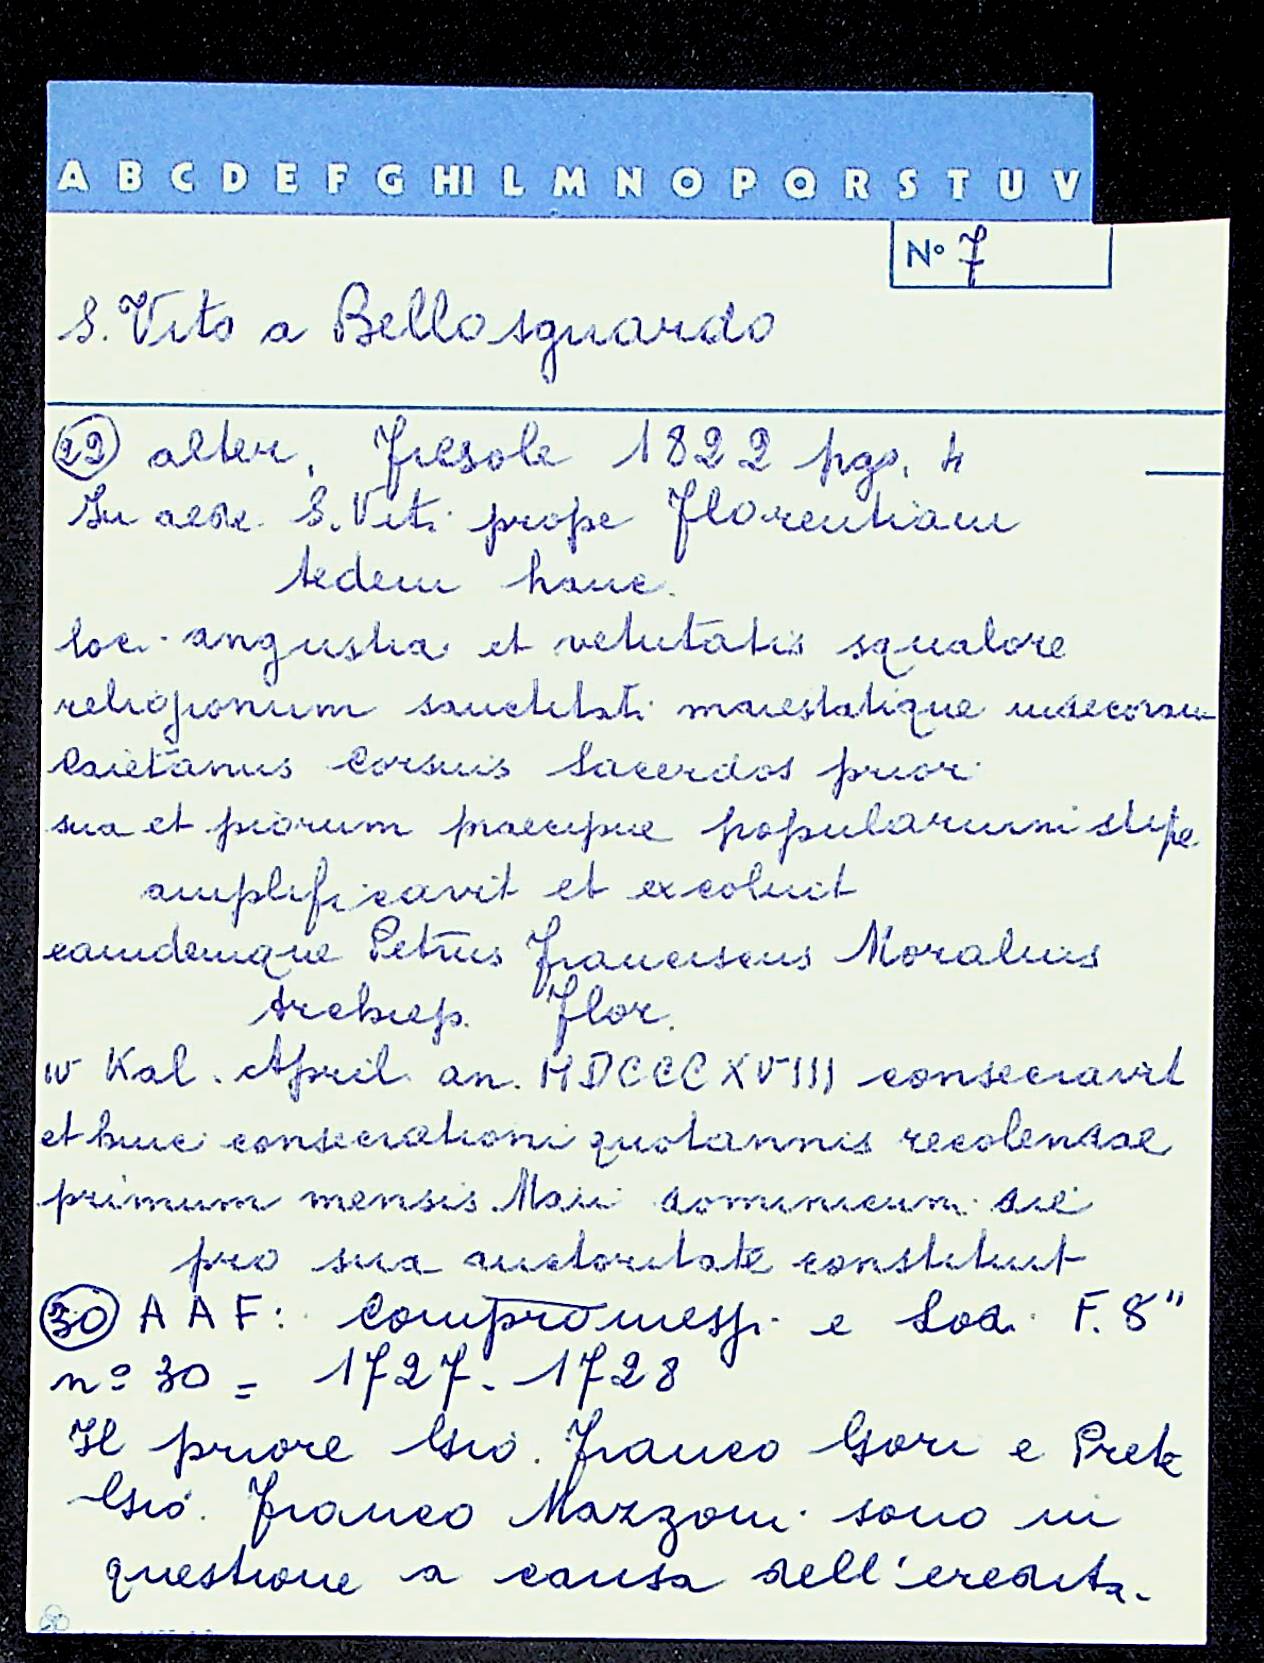 A B C D E F G HI L M N O P Q R S T U V
N° 7
S. Vito a Bellosguardo
29 alter. Fiesole 1822 pgs. 4
In aede S. Viti prope Florentiam
Aedem hanc
loci angustia et vetutatis squalore
religionum sanctitati maiestatique indecoram
Caietanus Corsius Sacerdos prior
sua et piorum praecipue popularium stipe
amplificavit et excoluit
eamdemque Petrus Franciscus Moralius
Archiep. Flor.
IV Kal. April. an. MDCCCXVIII consecravit
et huic consecrationi quotannis recolendae
primum mensis Maii dominicum die
pro sua auctoritate constituit
30 A A F: Compromessi e Lod. F. 8"
nº 30 = 1727-1728
Il priore Gio. Franco Gori e Prete
Gio. Franco Mazzoni sono in
questione a causa dell'eredita.